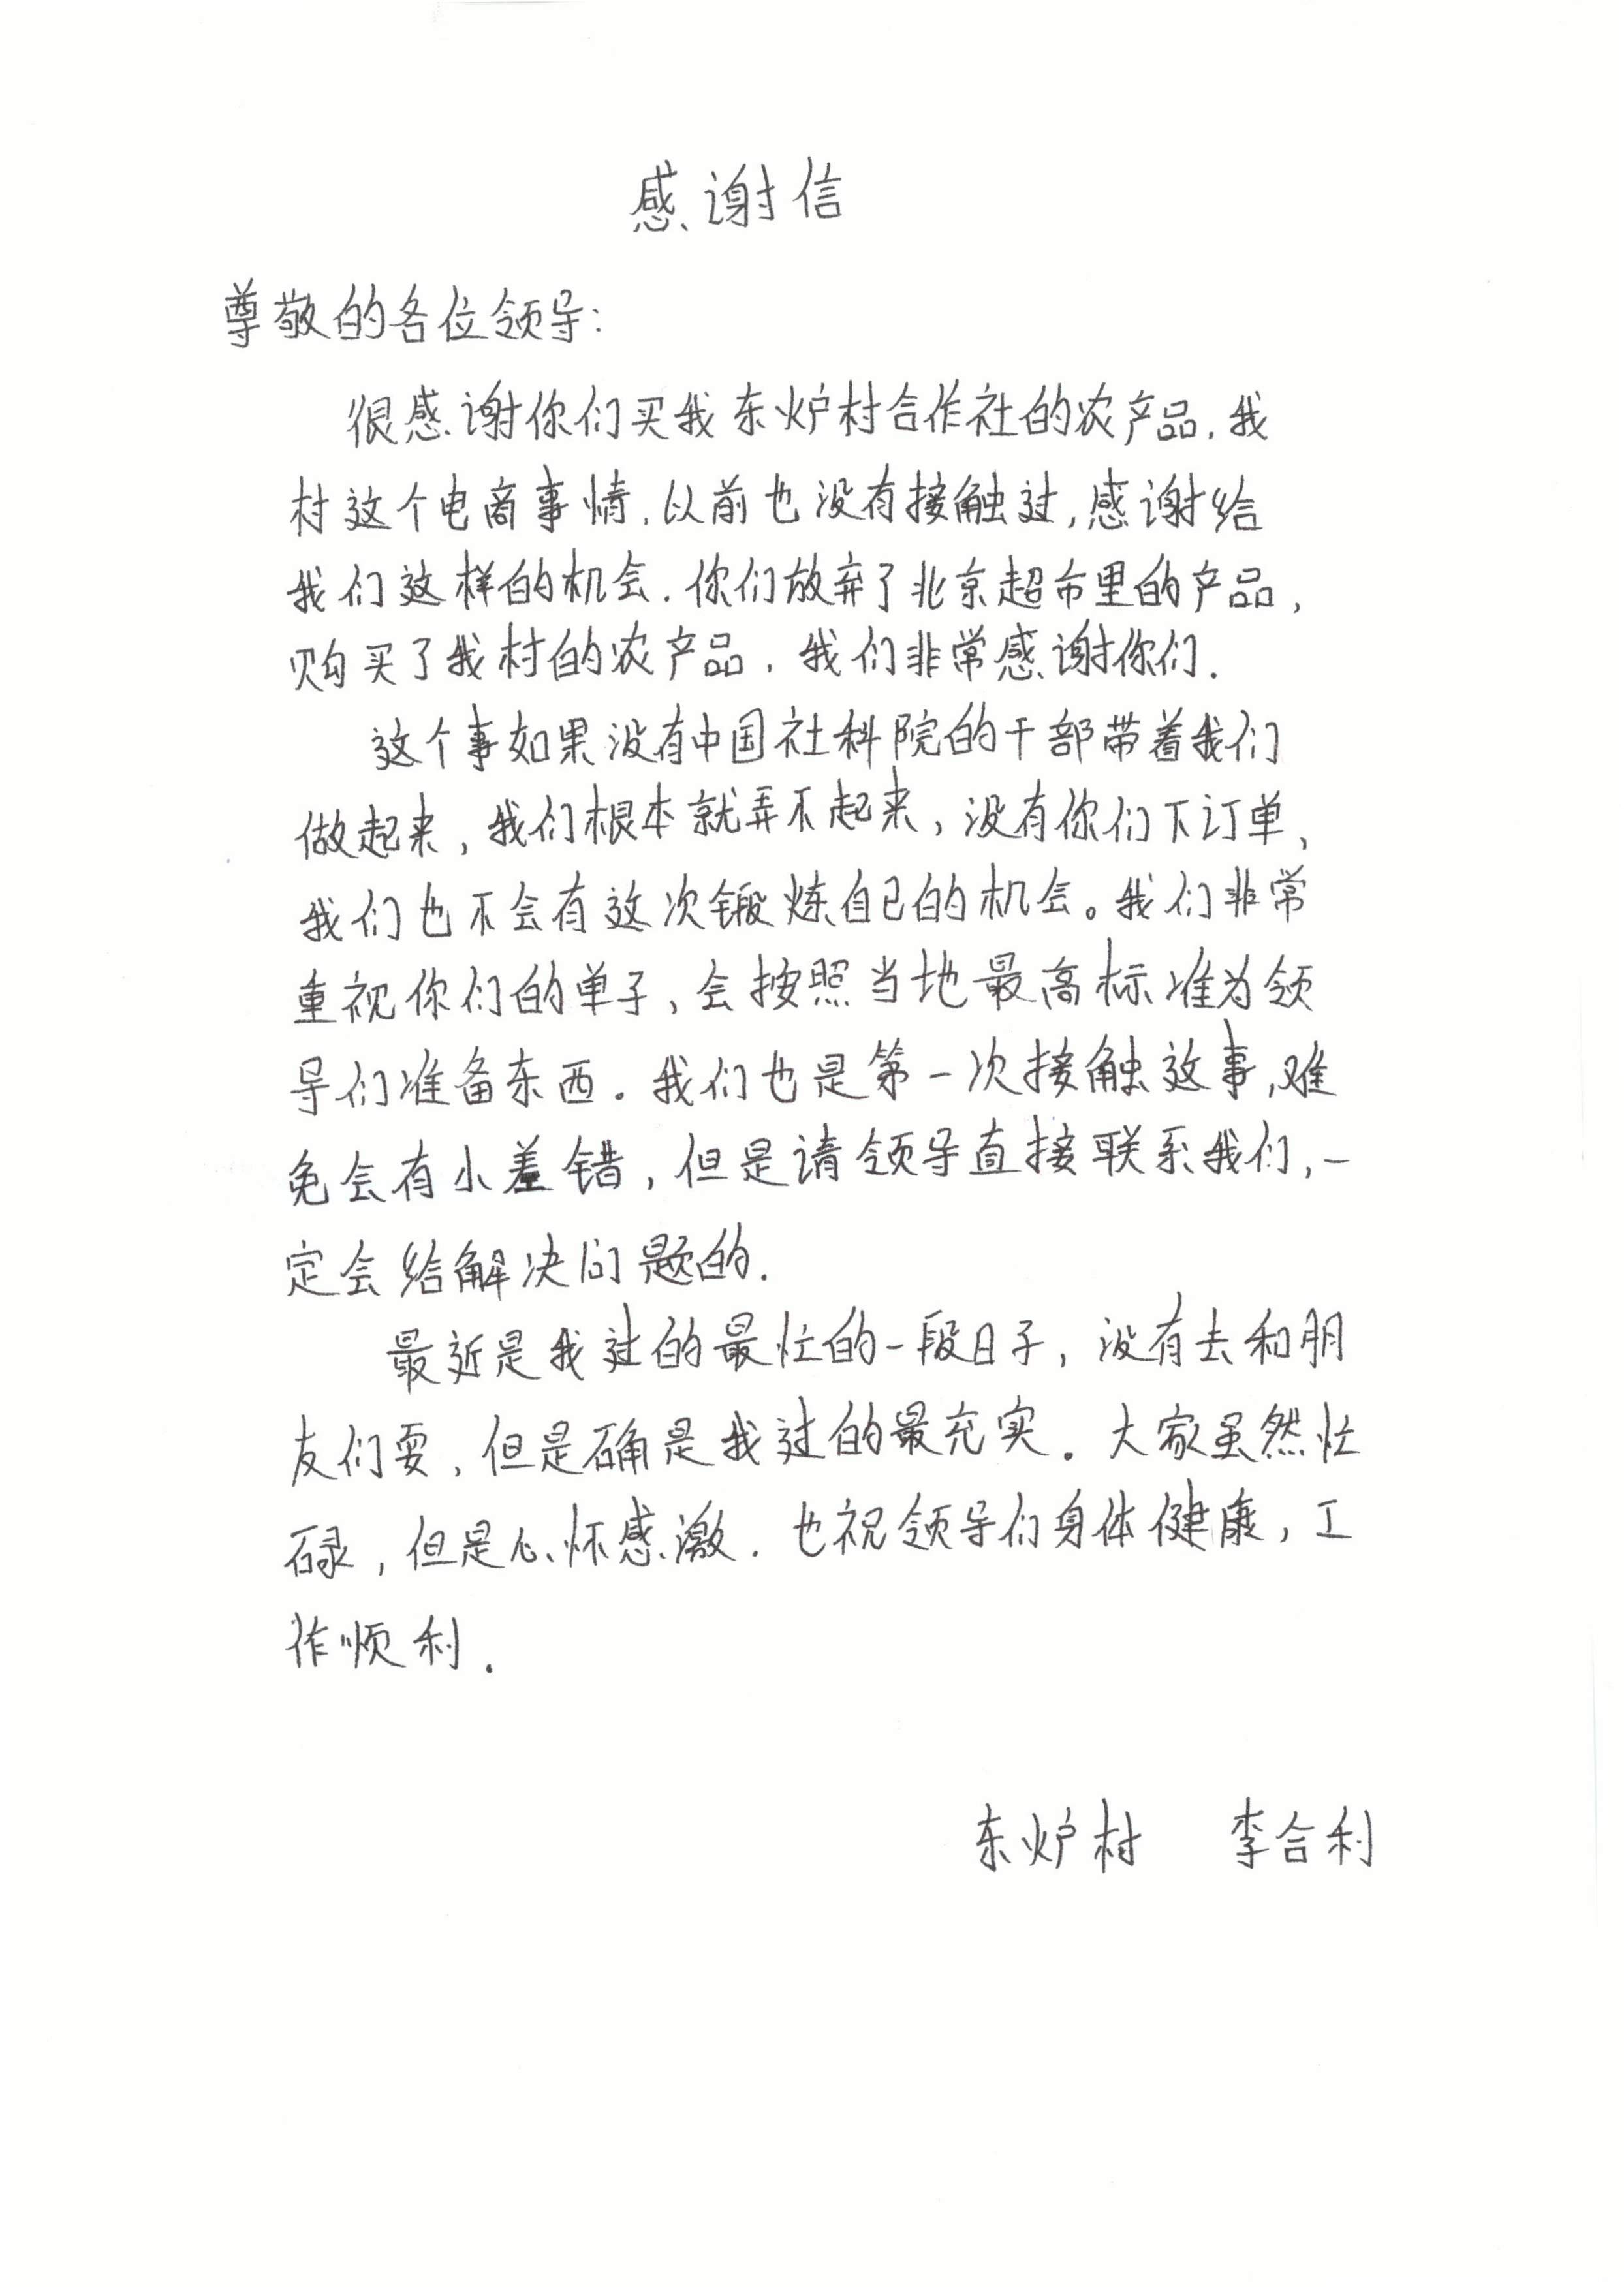 感谢信
尊敬的各位领导:
很感谢你们买我东炉村合作社的农产品.我
村这个电商事情.以前也没有接触过,感谢给
我们这样的机会.你们放弃了北京超市里的产品,
购买了我村的农产品.我们非常感谢你们.
这个事如果没有中国社科院的干部带着我们
做起来,我们根本就弄不起来,没有你们下订单,
我们也不会有这次锻炼自己的机会。我们非常
重视你们的单子,会按照当地最高标准为领
导们准备东西.我们也是第一次接触这事,难
免会有小差错,但是请领导直接联系我们,一
定会给解决问题的.
最近是我过的最忙的一段日子,没有去和朋
友们耍,但是确是我过的最充实.大家虽然忙
碌,但是心怀感激.也祝领导们身体健康,工
作顺利.
东炉村 李合利